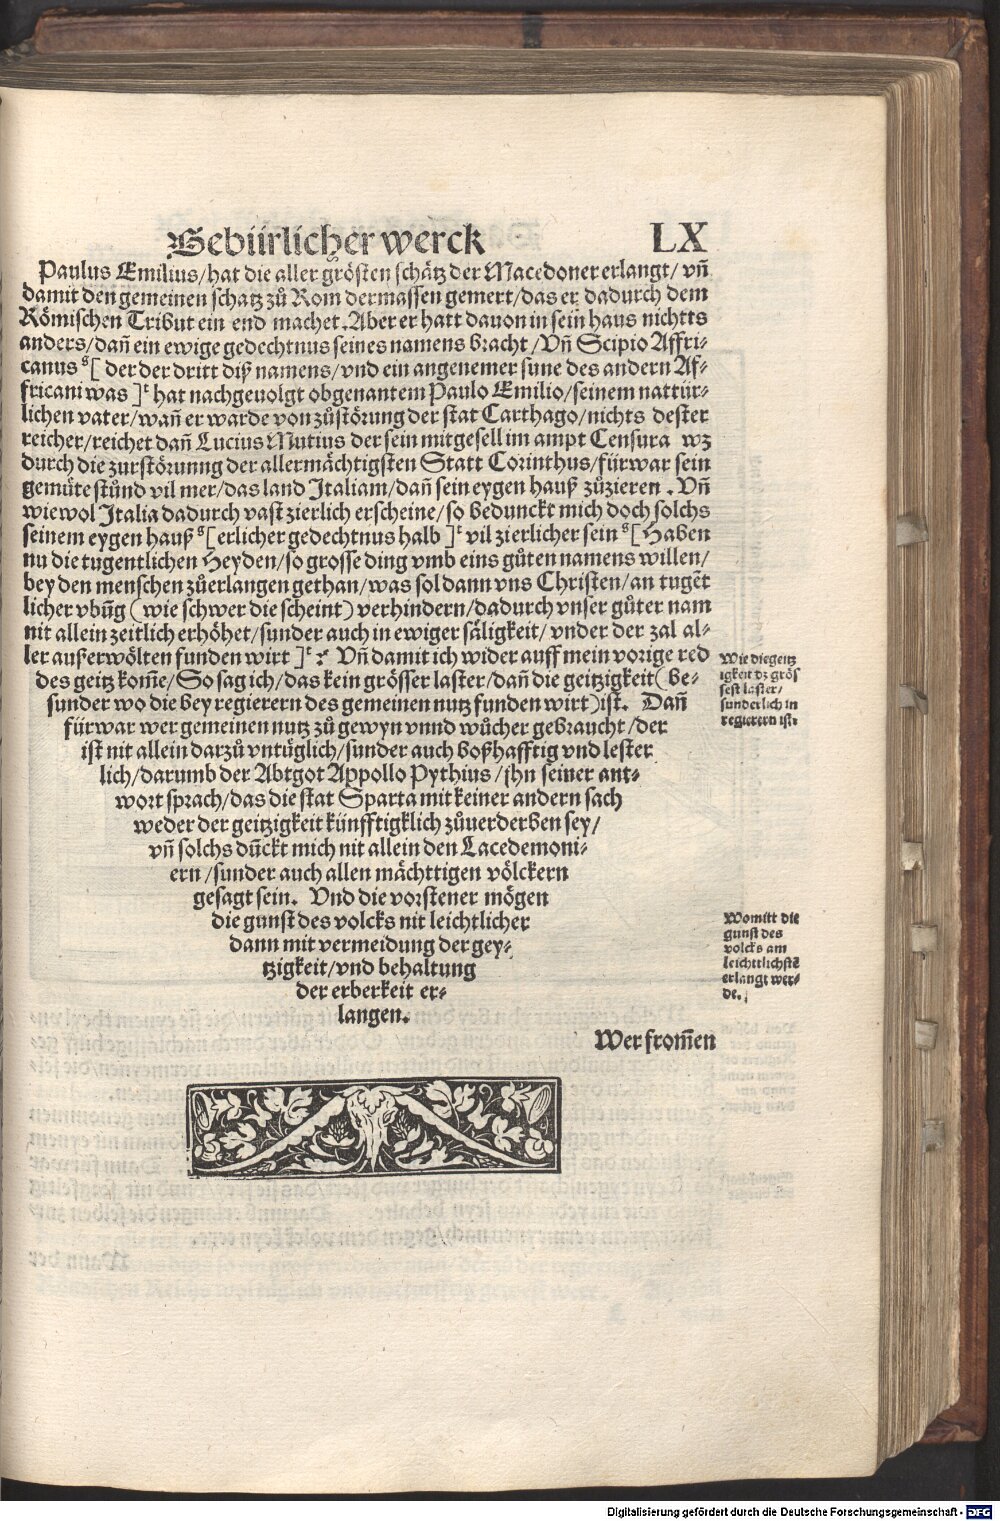 Gebürlicher werck LX
Paulus Emilius/hat die aller grösten schätz der Macedoner erlangt/ vñ
damit den gemeinen schatz zů Rom dermassen gemert/das er dadurch dem
Römischen Tribut ein end machet. Aber er hatt dauon in sein haus nichtts
anders/dañ ein ewige gedechtnus seines namens bracht/Vñ Scipio Affri-
canus ˢ[ der der dritt diß namens/vnd ein angenemer sune des andern Af-
fricani was ]ᵗ hat nachgeuolgt obgenantem Paulo Emilio/seinem nattür-
lichen vater/wañ er warde von zůstörung der stat Carthago/nichts dester
reicher/reichet dañ Lucius Mutius der sein mitgesell im ampt Censura wz
durch die zurstörunng der allermächtigsten Statt Corinthus/fürwar sein
gemüte stůnd vil mer/das land Italiam/dañ sein eygen hauß zůzieren. Vñ
wiewol Italia dadurch vast zierlich erscheine/so bedunckt mich doch solchs
seinem eygen hauß ˢ[ erlicher gedechtnus halb ]ᵗ vil zierlicher sein ˢ[ Haben
nu die tugentlichen Heyden/so grosse ding vmb eins gůten namens willen/
bey den menschen zůerlangen gethan/was sol dann vns Christen/an tugẽt
licher vbũg (wie schwer die scheint) verhindern/dadurch vnser gůter nam
nit allein zeitlich erhöhet/sunder auch in ewiger säligkeit/vnder der zal al-
ler außerwölten funden wirt ]ᵗ Vñ damit ich wider auff mein vorige red
des geitz kom̃e/So sag ich/das kein grösser laster/dañ die geitzigkeit (be-
sunder wo die bey regierern des gemeinen nutz funden wirt) ist. Dañ
fürwar wer gemeinen nutz zů gewyn vnnd wůcher gebraucht/der
ist nit allein darzů vntüglich/sunder auch boßhafftig vnd lester
lich/darumb der Abtgot Appollo Pythius/jhn seiner ant-
wort sprach/das die stat Sparta mit keiner andern sach
weder der geitzigkeit künfftigklich zůuerderben sey/
vñ solchs dũckt mich nit allein den Lacedemoni-
ern/sunder auch allen mächttigen völckern
gesagt sein. Vnd die vorstener mögen
die gunst des volcks nit leichtlicher
dann mit vermeidung der gey-
tzigkeit/vnd behaltung
der erberkeit er-
langen.
Wer from̃en
Wie die geitz
igkeit dz grös
sest laster/
sunderlich in
regierern ist.
Womitt die
gunst des
volcks am
leichttlichstẽ
erlangt wer-
de.
Digitalisierung gefördert durch die Deutsche Forschungsgemeinschaft - DFG